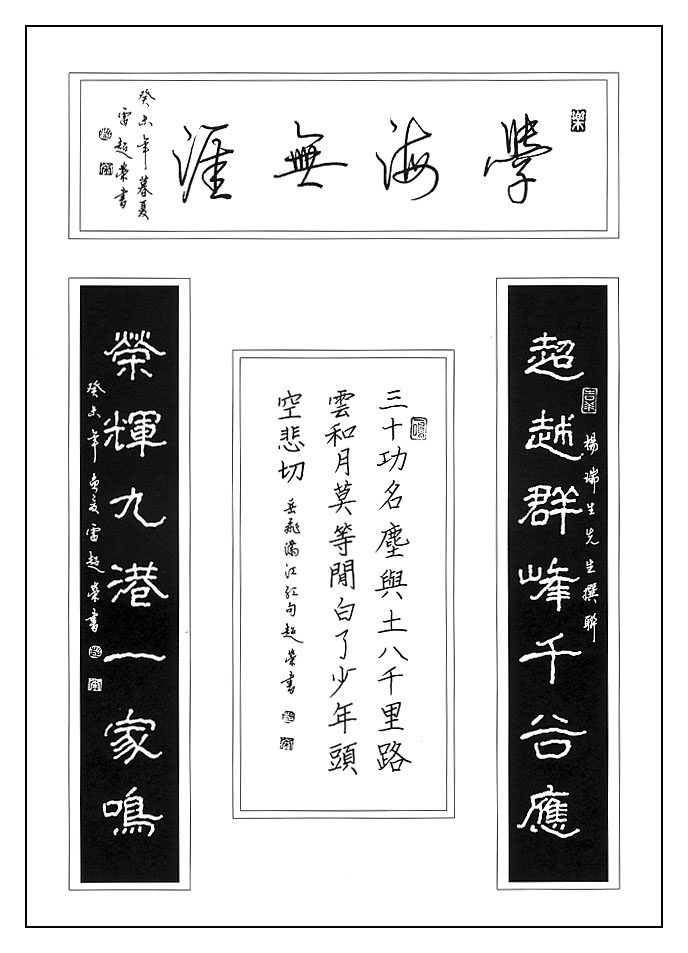 學海無涯
癸未年暮夏
雷超榮書
超越群峰千谷應
楊瑞生先生撰聯
三十功名塵與土八千里路
雲和月莫等閒白了少年頭
空悲切
岳飛滿江紅句超榮書
榮輝九港一家鳴
癸未年
雷超榮書